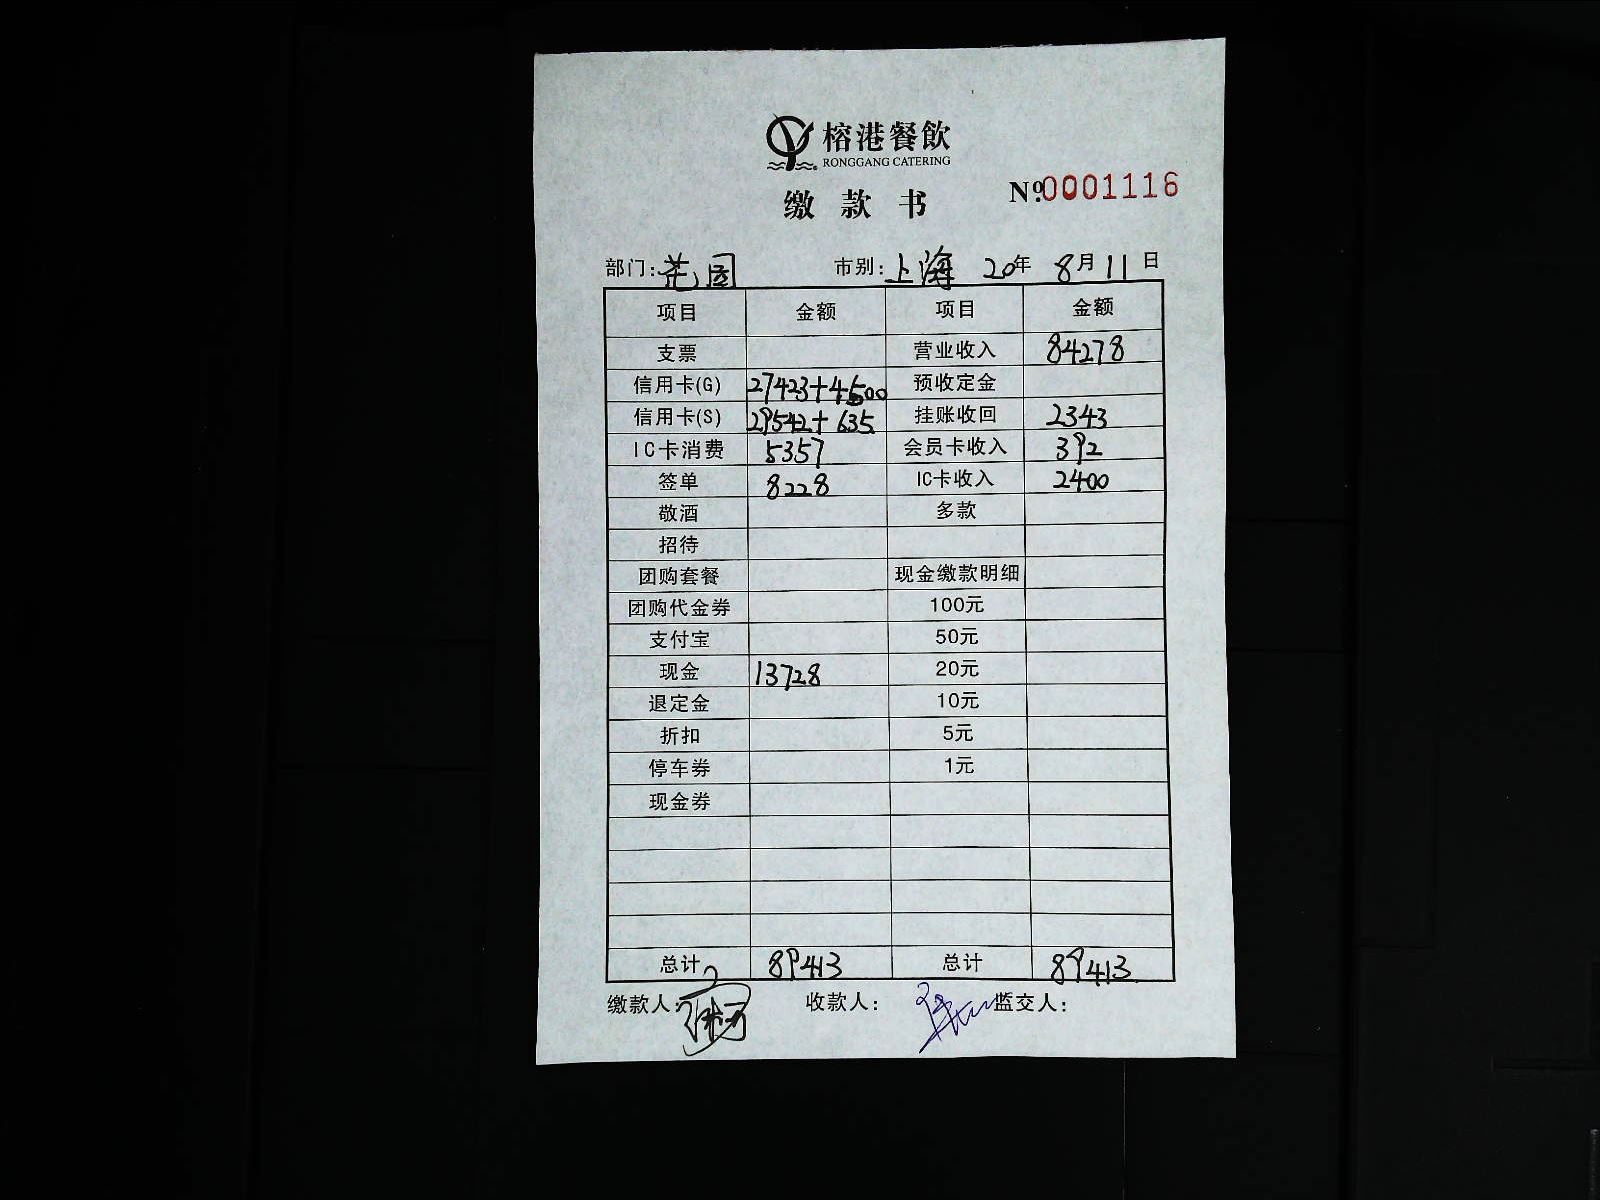 榕港餐飲
RONGGANG CATERING
缴款书
№0001116
部门:花园 市别:上海 20年 8月11日
项目 金额 项目 金额
支票 营业收入 84278
信用卡(G) 27423+4500 预收定金
信用卡(S) 29542+635 挂账收回 2343
IC卡消费 5357 会员卡收入 392
签单 8228 IC卡收入 2400
敬酒 多款
招待
团购套餐 现金缴款明细
团购代金券 100元
支付宝 50元
现金 13728 20元
退定金 10元
折扣 5元
停车券 1元
现金券
总计 89413 总计 89413
缴款人: 收款人: 监交人: